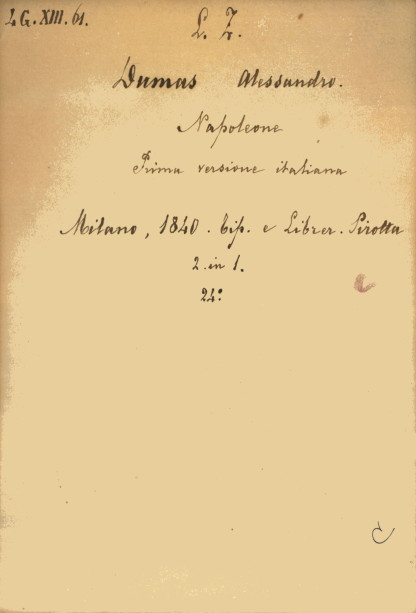 LG.XIII.61.
L. Z.
Dumas Alessandro.
Napoleone
Prima versione italiana
Milano, 1840. Tip. e Librer. Pirotta
2. in 1.
24.°
C